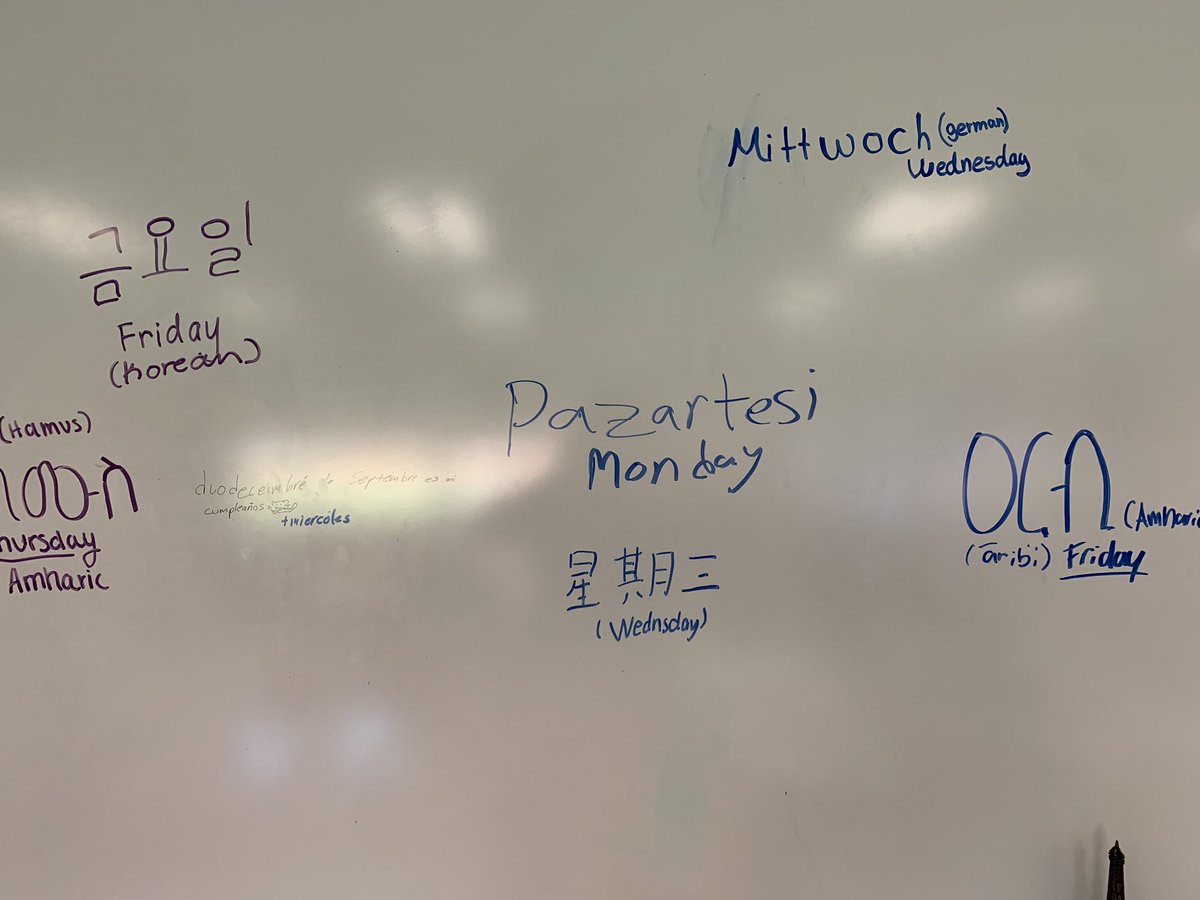 Mittwoch (german)
Wednesday
금요일
Friday
(Korean)
(Hamus)
hursday
Amharic
Septiembre es mi
cumpleaños
miercoles
Pazartesi
Monday
星期三
(Wednsday)
ዐርብ (Amharic
(āribi) Friday